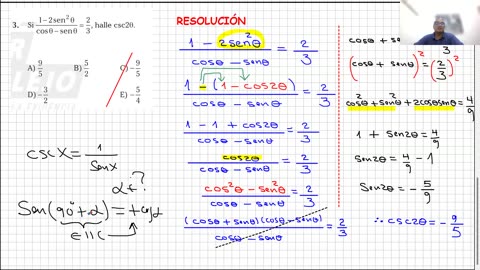 3. Si (1-2sen²θ)/(cosθ-senθ) = 2/3, halle csc2θ.
A) 9/5 B) 5/2 C) -9/5
D) -3/2 E) -5/4
cscX = 1/SenX
α ?
Sen(90°+α) = +cosα
∈ IIC
RESOLUCIÓN
(1 - 2sen²θ)/(cosθ - senθ) = 2/3
(1 - (1 - cos2θ))/(cosθ - senθ) = 2/3
(1 - 1 + cos2θ)/(cosθ - senθ) = 2/3
cos2θ/(cosθ - senθ) = 2/3
(cos²θ - sen²θ)/(cosθ - senθ) = 2/3
((cosθ + senθ)(cosθ - senθ))/(cosθ - senθ) = 2/3
cosθ + sen
(cosθ + senθ)² = (2/3)²
cos²θ + sen²θ + 2cosθsenθ = 4/9
1 + sen2θ = 4/9
sen2θ = 4/9 - 1
Sen2θ = -5/9
∴ csc2θ = -9/5